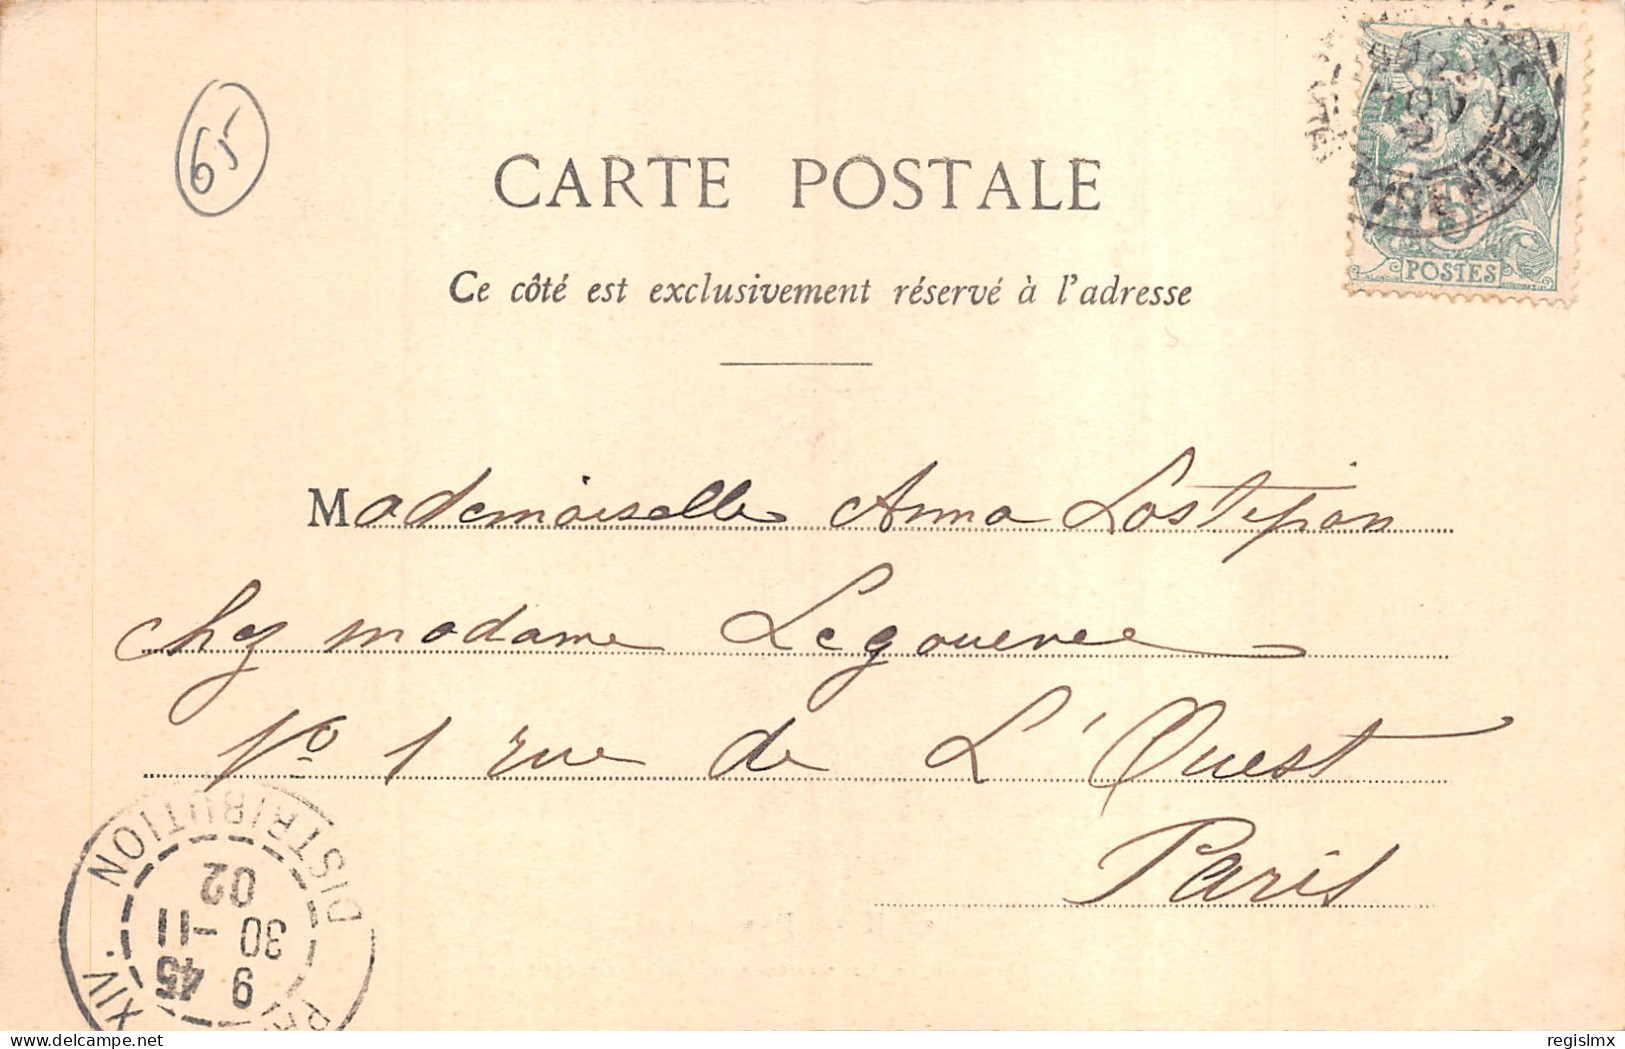 65
CARTE POSTALE
Ce côté est exclusivement réservé à l'adresse
POSTES
Mademoiselle Anna Lostepian
chez madame Legouevee
No 1 rue de L'Ouest
Paris
DISTRIBUTION
XIV
9 45
30 -11
02
regislmx